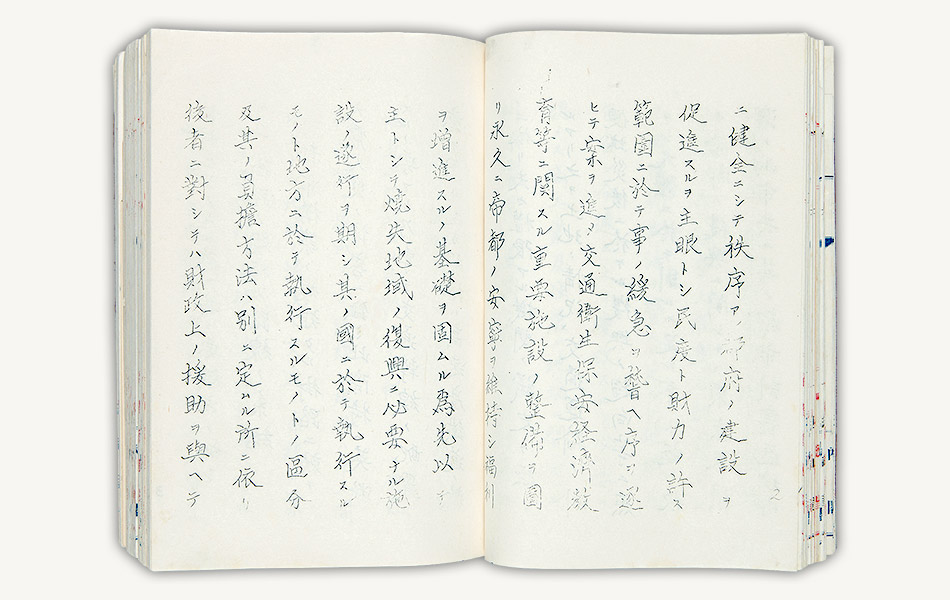 2
ニ健全ニシテ秩序アル都府ノ建設ヲ
促進スルヲ主眼トシ民度ト財力ノ許ス
範圍ニ於テ事ノ緩急ヲ警ヘ序ヲ逐
ヒテ案ヲ進メ交通衛生保安経済教
育等ニ関スル重要施設ノ整備ヲ圖
リ永久ニ帝都ノ安寧ヲ維持シ福利
ヲ増進スルノ基礎ヲ固ムル爲先以テ
主トシテ焼失地域ノ復興ニ必要ナル施
設ノ遂行ヲ期シ其ノ國ニ於テ執行スル
モノト地方ニ於テ執行スルモノトノ區分
及其ノ負擔方法ハ別ニ定ムル所ニ依リ
後者ニ對シテハ財政上ノ援助ヲ與ヘテ